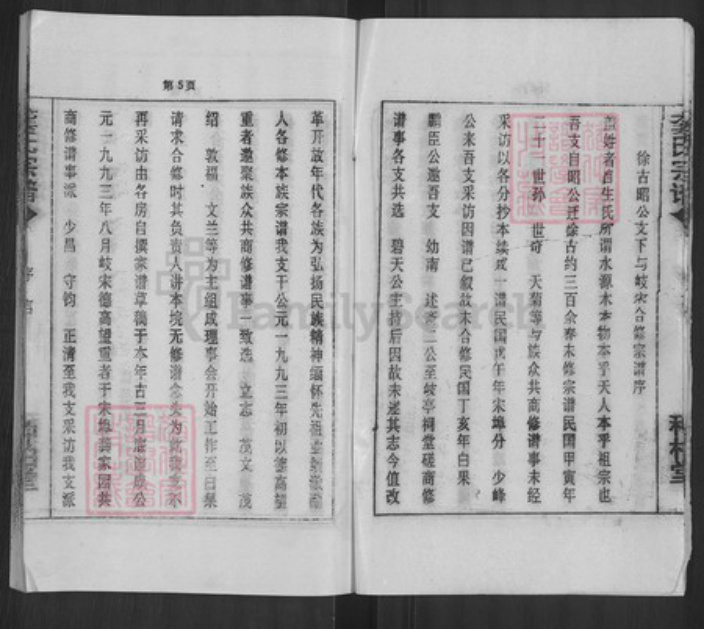 徐古昭公支下与岐宋合修宗谱序
姓者自生氏所谓水源木本物本乎天人本乎祖宗也
吾支自昭公迁徐古约三百余春未修宗谱民国甲寅年
二十一世孙 世奇 天菊等与族众共商修谱事未经
采访以各分抄本续成一谱民国戊午年宋埠分 少峰
公来吾支采访因谱已叙故未合修民国丁亥年白果
鹏臣公邀吾支 幼南 述 二公至岐亭祠堂磋商修
谱事各支共选 碧天公主持后因故未遂其志今值改
第5页
革开放年代各族为弘扬民族精神缅怀先祖
人各修本族宗谱我支于公元一九九三年初以德高望
重者邀聚族众共商修谱事一致选 立志 茂文 茂
绍 敦福 文兰等为主组成理事会开始工作至白果
请求合修时其负责人讲本境无修谱念头为此我支不
再采访由各房自撰家谱草稿于本年古三月底造成公
元一九九三年八月岐宋德高望重者于宋埠龚家园共
商修谱事派 少昌 守钧 正清至我支采访我支派
李氏宗谱
序言
FamilySearch